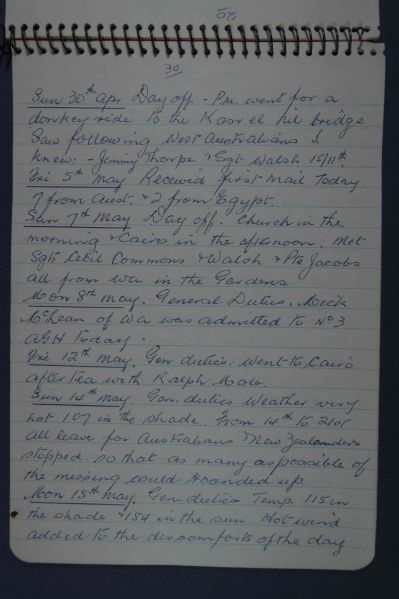 30
Sun 30th apr Day off. - P.m. went for a
donkey ride to the Kasrel nil bridge.
Saw following West Australians I
knew: - Jimmy Thorpe & Sgt Walsh 15/11th
Fri 5th May Received first mail Today
7 from Aust. & 2 from Egypt.
Sun 7th May Day off. Church in the
morning & Cairo in the afternoon. Met
Sgts Cecil Commons & Walsh & Pte Jacobs
all from WA in the Gardens.
Mon 8th May. General Duties.
McLean of Wa was admitted to No 3
AGH Today.
Fri 12th May. Gen duties: went to Cairo
after tea with Ralph
Sun 14th May. Gen. duties Weather very
hot 107 in the shade. From 14th to 21st
all leave for Australians & New Zealanders
stopped so that as many as possible of
the missing could roanded up.
Mon 15th May. Gen duties Temp. 115 in
the shade & 154 in the sun. Hot wind
added to the discomforts of the day